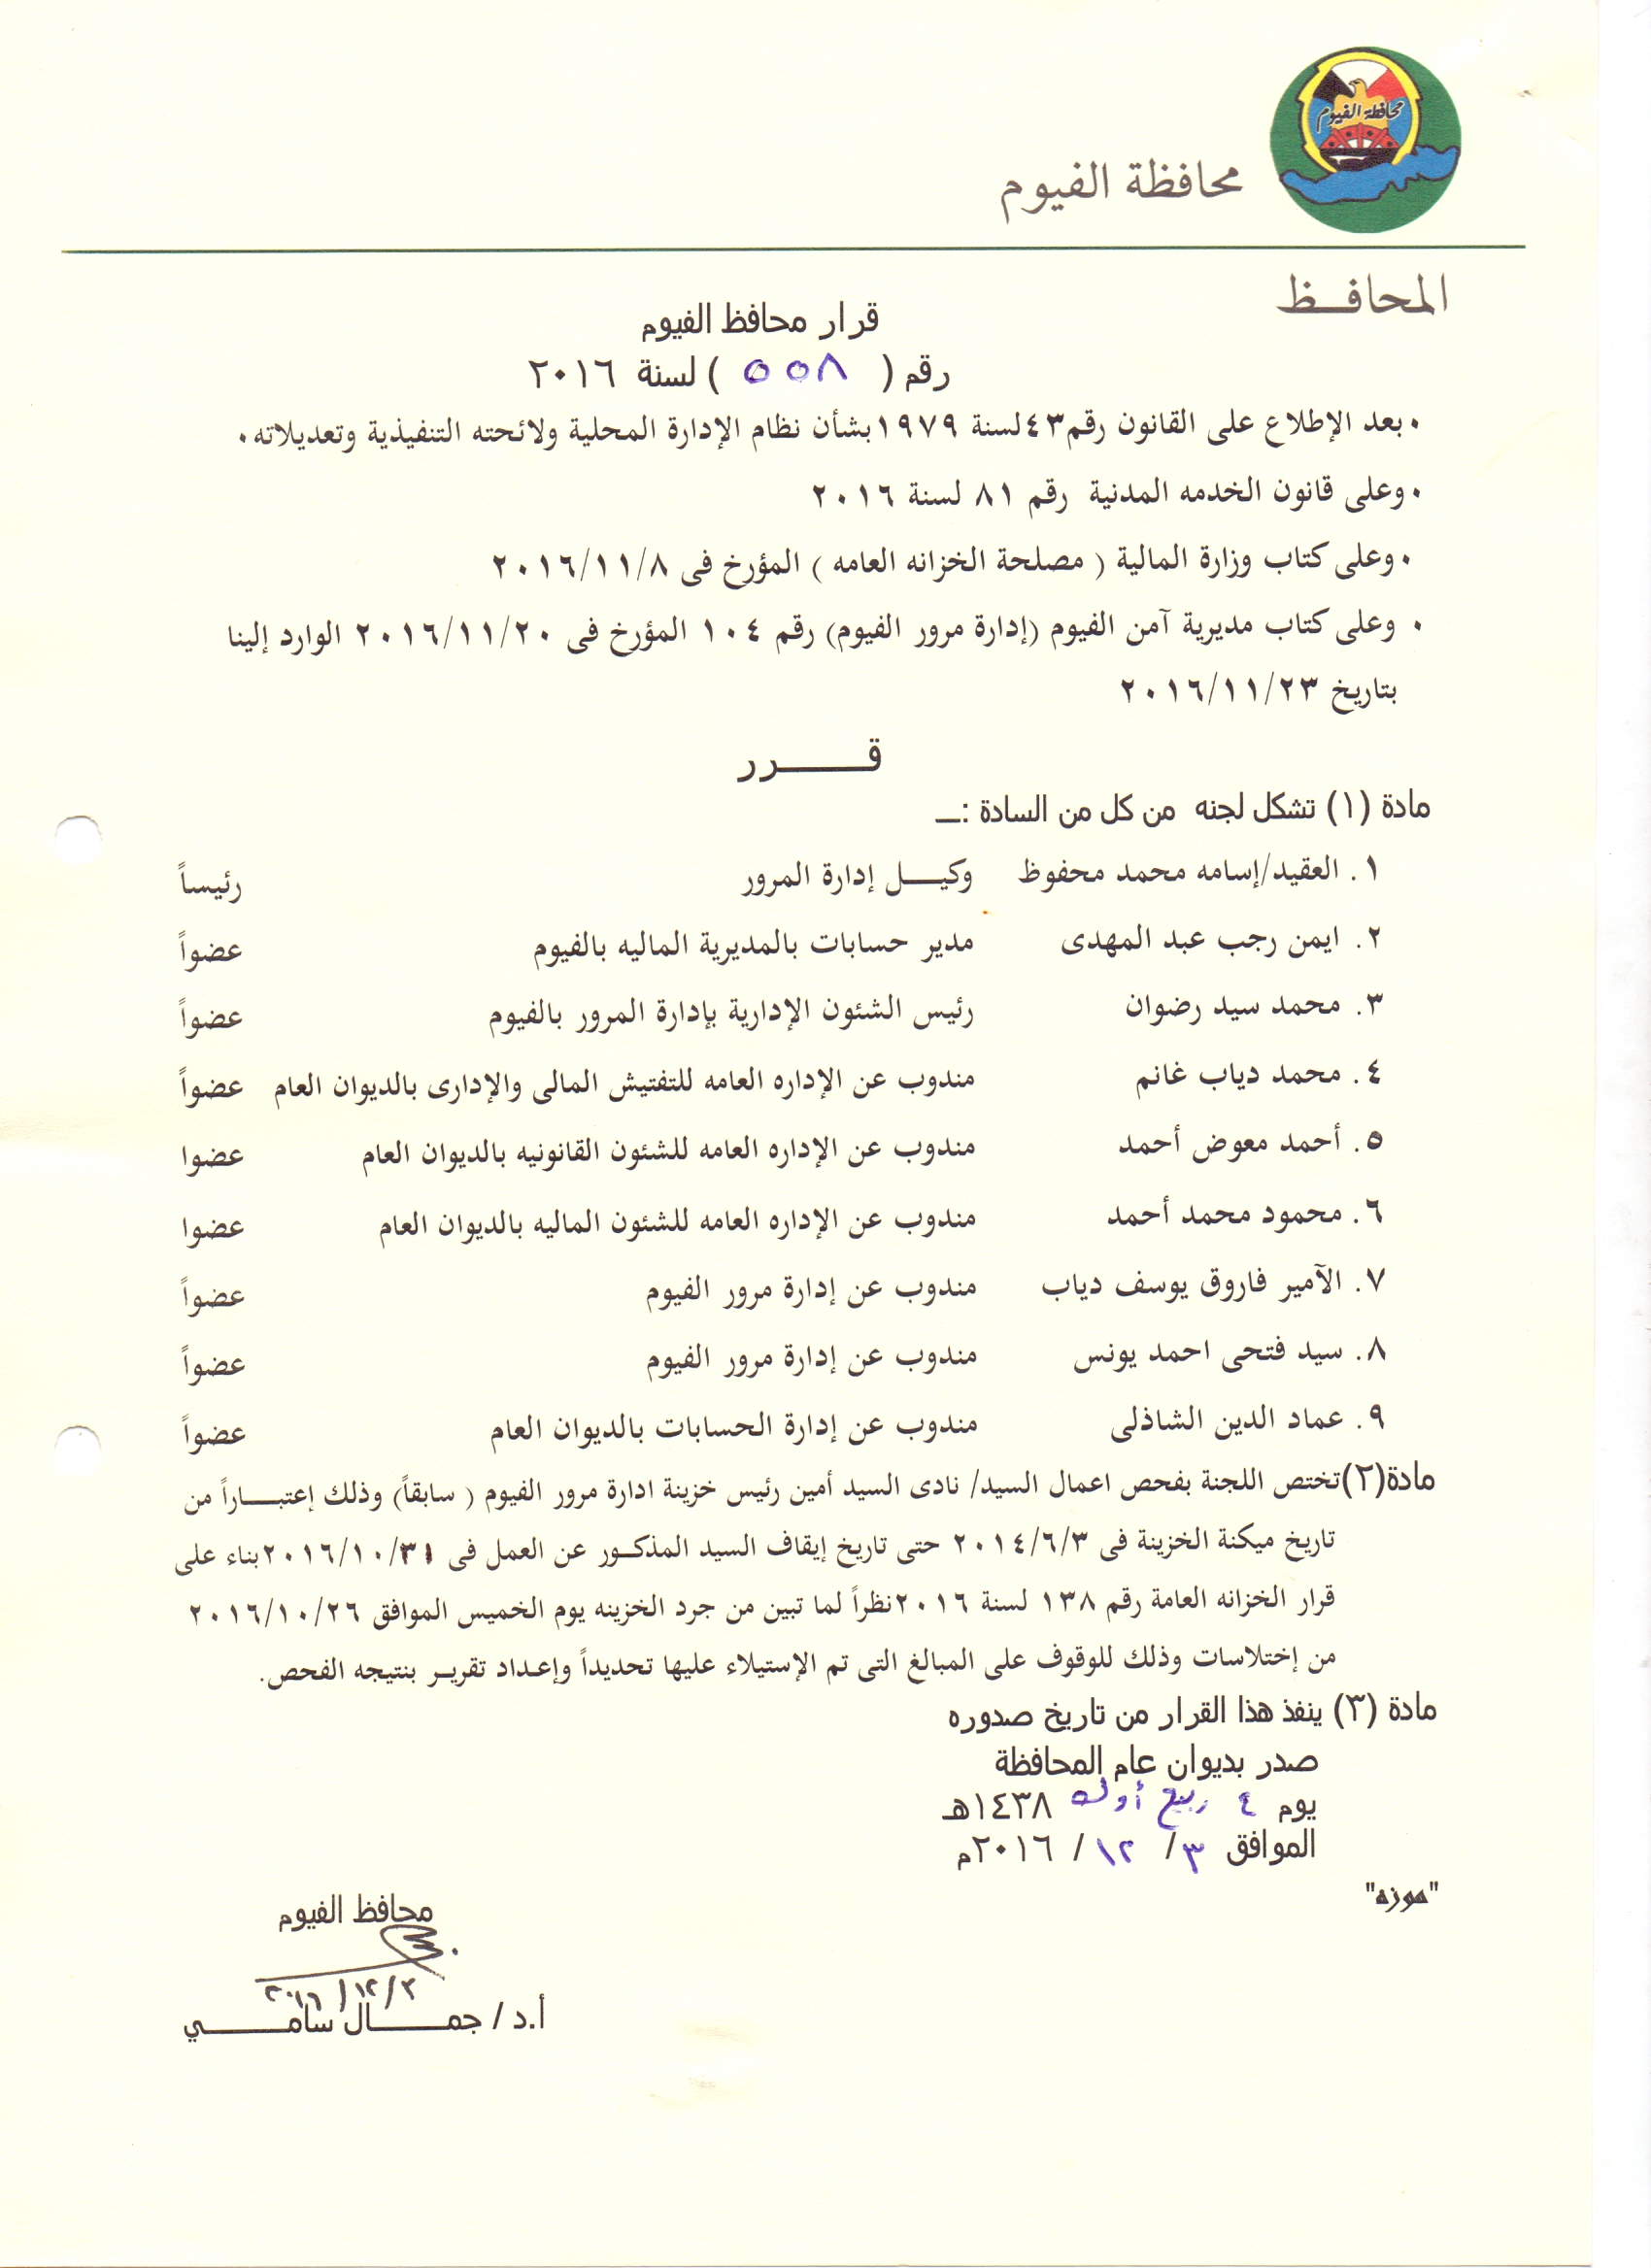 محافظة الفيوم
محافظة الفيوم
المحافـــظ
قرار محافظ الفيوم
رقم ( ٥٥٨ ) لسنة ٢٠١٦
٠ بعد الإطلاع على القانون رقم٤٣لسنة ١٩٧٩بشأن نظام الإدارة المحلية ولائحته التنفيذية وتعديلاته٠
٠ وعلى قانون الخدمه المدنية رقم ٨١ لسنة ٢٠١٦
٠ وعلى كتاب وزارة المالية ( مصلحة الخزانه العامه ) المؤرخ فى ٢٠١٦/١١/٨
٠ وعلى كتاب مديرية آمن الفيوم (إدارة مرور الفيوم) رقم ١٠٤ المؤرخ فى ٢٠١٦/١١/٢٠ الوارد إلينا
بتاريخ ٢٠١٦/١١/٢٣
قـــــــرر
مادة (١) تشكل لجنه من كل من السادة :ــ
١. العقيد/إسامه محمد محفوظ وكيـــل إدارة المرور رئيساً
٢. ايمن رجب عبد المهدى مدير حسابات بالمديرية الماليه بالفيوم عضواً
٣. محمد سيد رضوان رئيس الشئون الإدارية بإدارة المرور بالفيوم عضواً
٤. محمد دياب غانم مندوب عن الإداره العامه للتفتيش المالى والإدارى بالديوان العام عضواً
٥. أحمد معوض أحمد مندوب عن الإداره العامه للشئون القانونيه بالديوان العام عضوا
٦. محمود محمد أحمد مندوب عن الإداره العامه للشئون الماليه بالديوان العام عضوا
٧. الآمير فاروق يوسف دياب مندوب عن إدارة مرور الفيوم عضواً
٨. سيد فتحى احمد يونس مندوب عن إدارة مرور الفيوم عضواً
٩. عماد الدين الشاذلى مندوب عن إدارة الحسابات بالديوان العام عضواً
مادة(٢)تختص اللجنة بفحص اعمال السيد/ نادى السيد أمين رئيس خزينة ادارة مرور الفيوم ( سابقاً) وذلك إعتبـــاراً من
تاريخ ميكنة الخزينة فى ٢٠١٤/٦/٣ حتى تاريخ إيقاف السيد المذكـور عن العمل فى ٢٠١٦/١٠/٣١بناء على
قرار الخزانه العامة رقم ١٣٨ لسنة ٢٠١٦نظراً لما تبين من جرد الخزينه يوم الخميس الموافق ٢٠١٦/١٠/٢٦
من إختلاسات وذلك للوقوف على المبالغ التى تم الإستيلاء عليها تحديداً وإعـداد تقريـر بنتيجه الفحص.
مادة (٣) ينفذ هذا القرار من تاريخ صدوره
صدر بديوان عام المحافظة
يوم ٤ ربيع أول ١٤٣٨هـ
الموافق ٣/ ١٢/ ٢٠١٦م
"موزه"
محافظ الفيوم
٢٠١٦/١٢/٣
أ.د/ جمـــــال سامـــــــي